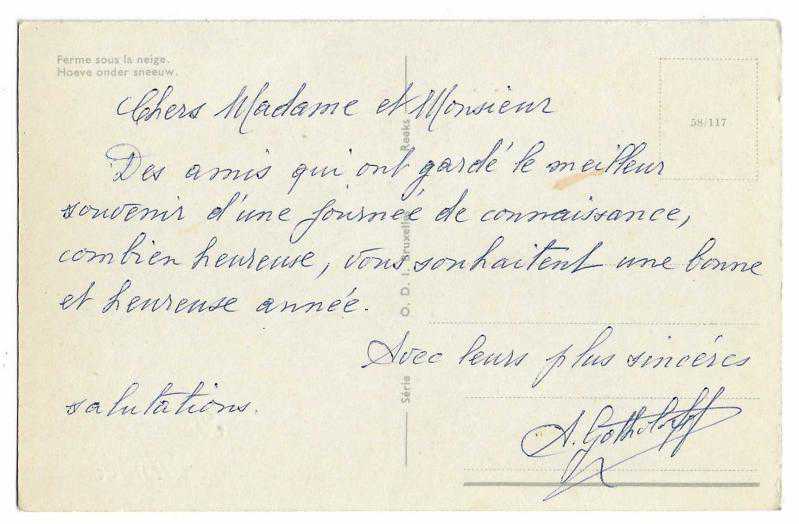 Ferme sous la neige.
Hoeve onder sneeuw.
58/117
Chers Madame et Monsieur
Des amis qui ont gardé le meilleur
souvenir d'une journée de connaissance,
combien heureuse, vous souhaitent une bonne
et heureuse année.
Avec leurs plus sincères
salutations.
A.
Série O. D. I. Bruxelles Reeks